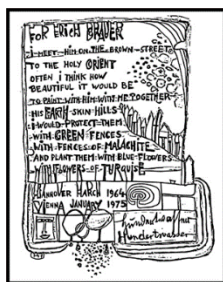 FOR ERICH BRAUER
I MEET HIM ON THE BROWN STREET
TO THE HOLY ORIENT
OFTEN I THINK HOW
BEAUTIFUL IT WOULD BE
TO PAINT WITH HIM WITH ME TOGETHER
HIS EARTH SKIN HILLS
I WOULD PROTECT THEM
WITH GREEN FENCES
WITH FENCES OF MALACHITE
AND PLANT THEM WITH BLUE FLOWERS
WITH FLOWERS OF TURQUISE
HANNOVER MARCH 1964
VIENNA JANUARY 1975
Hundertwasser
Hundertwasser